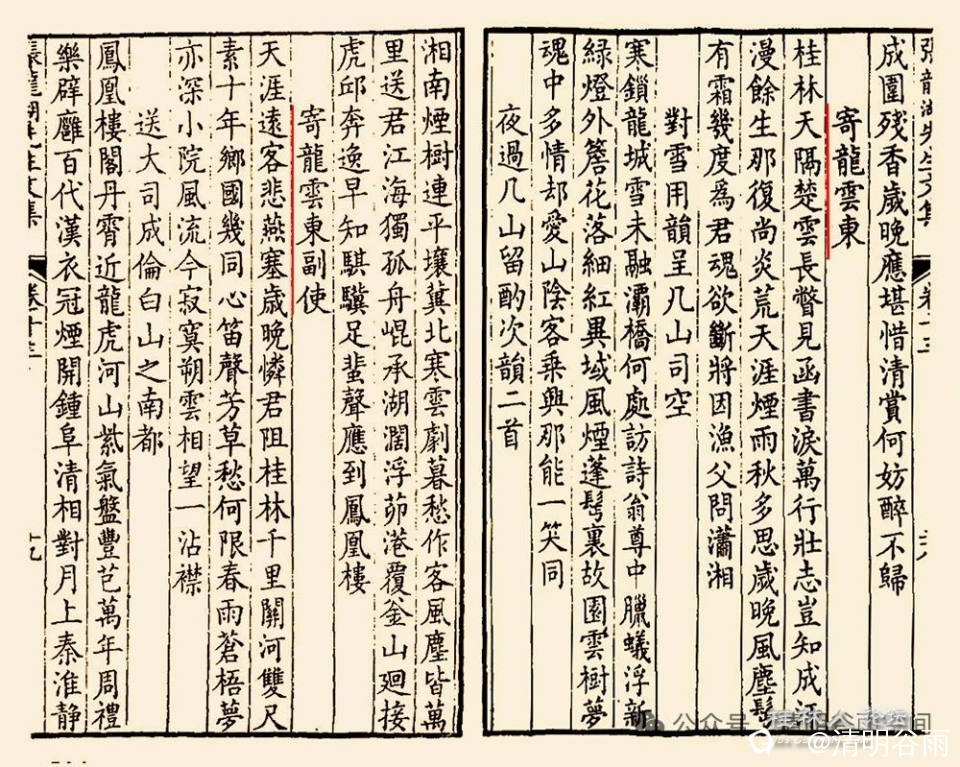 張龍湖先生文集
卷十三
成圍殘香歲晚應堪惜清賞何妨醉不歸
寄龍雲東
桂林天隔楚雲長瞥見函書淚萬行壯志豈知成江
漫餘生那復尚炎荒天涯煙雨秋多思歲晚風塵鬂
有霜幾度為君魂欲斷將因漁父問瀟湘
對雪用韻呈几山司空
寒鎖龍城雪未融灞橋何處訪詩翁尊中臘蟻浮新
綠燈外簷花落細紅異域風煙蓬髩裏故園雲樹夢
魂中多情却愛山陰客乗興那能一笑同
夜過几山留酌次韻二首
湘南煙樹連平壤冀北寒雲劇暮愁作客風塵皆萬
里送君江海獨孤舟崐承湖濶浮茆港覆釡山廻接
虎邱奔逸早知騏驥足蜚聲應到鳳凰樓
寄龍雲東副使
天涯遠客悲燕塞歲晚憐君阻桂林千里關河雙尺
素十年鄉國幾同心笛聲芳草愁何限春雨蒼梧夢
亦深小院風流今寂寞朔雲相望一沾襟
送大司成倫白山之南都
鳳凰樓閣丹霄近龍虎河山紫氣盤豐芑萬年周禮
樂辟廱百代漢衣冠煙開鍾阜清相對月上秦淮静
張龍湖先生文集
卷十三
十九
公众号
@清明谷雨